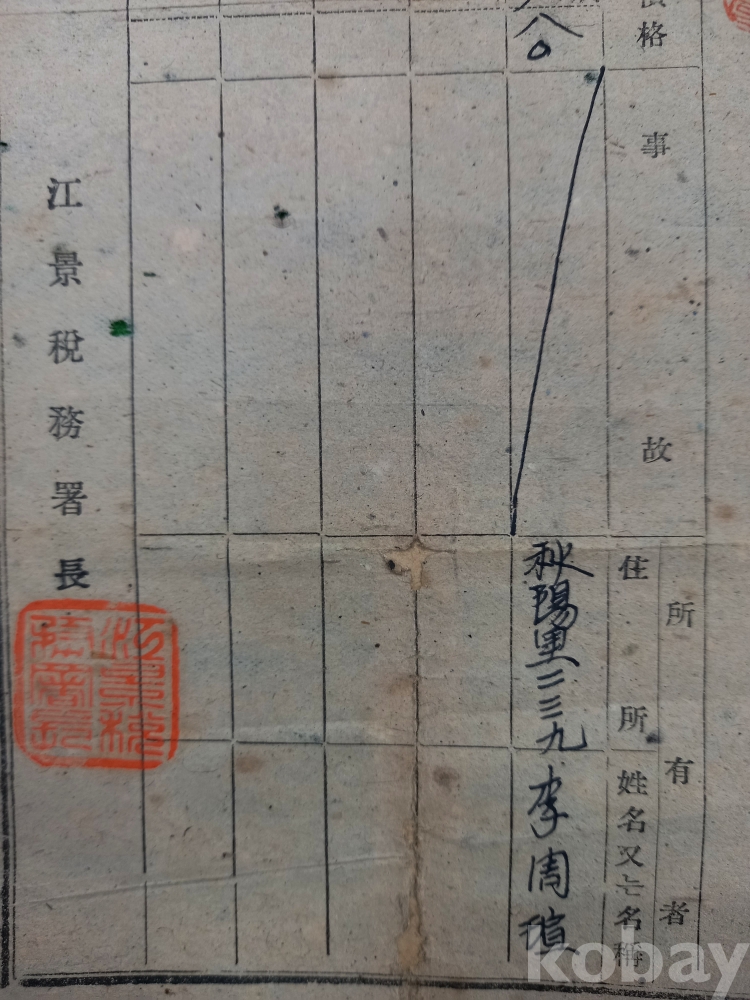 價格
事故
所有者
住所
姓名又는名稱
八〇
秋陽里二三九
李周瑱
江景稅務署長
kobay